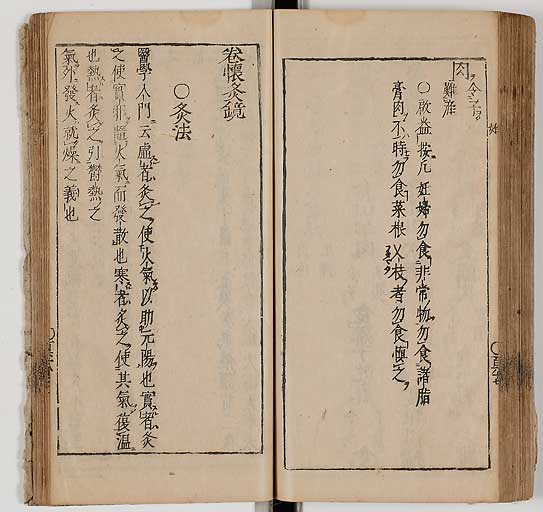 肉 令子
難産
○啟益按凡妊婦勿食非常物勿食諸脂
膏肉不時勿食菜根乂枝者勿食慎之
卷懷灸鏡
○灸法
醫學入門云虛者灸之使火氣以助元陽也實者灸
之使實邪隨火氣而發散也寒者灸之使其氣復溫
也熱者灸之引鬱熱之
氣外發火就燥之義也